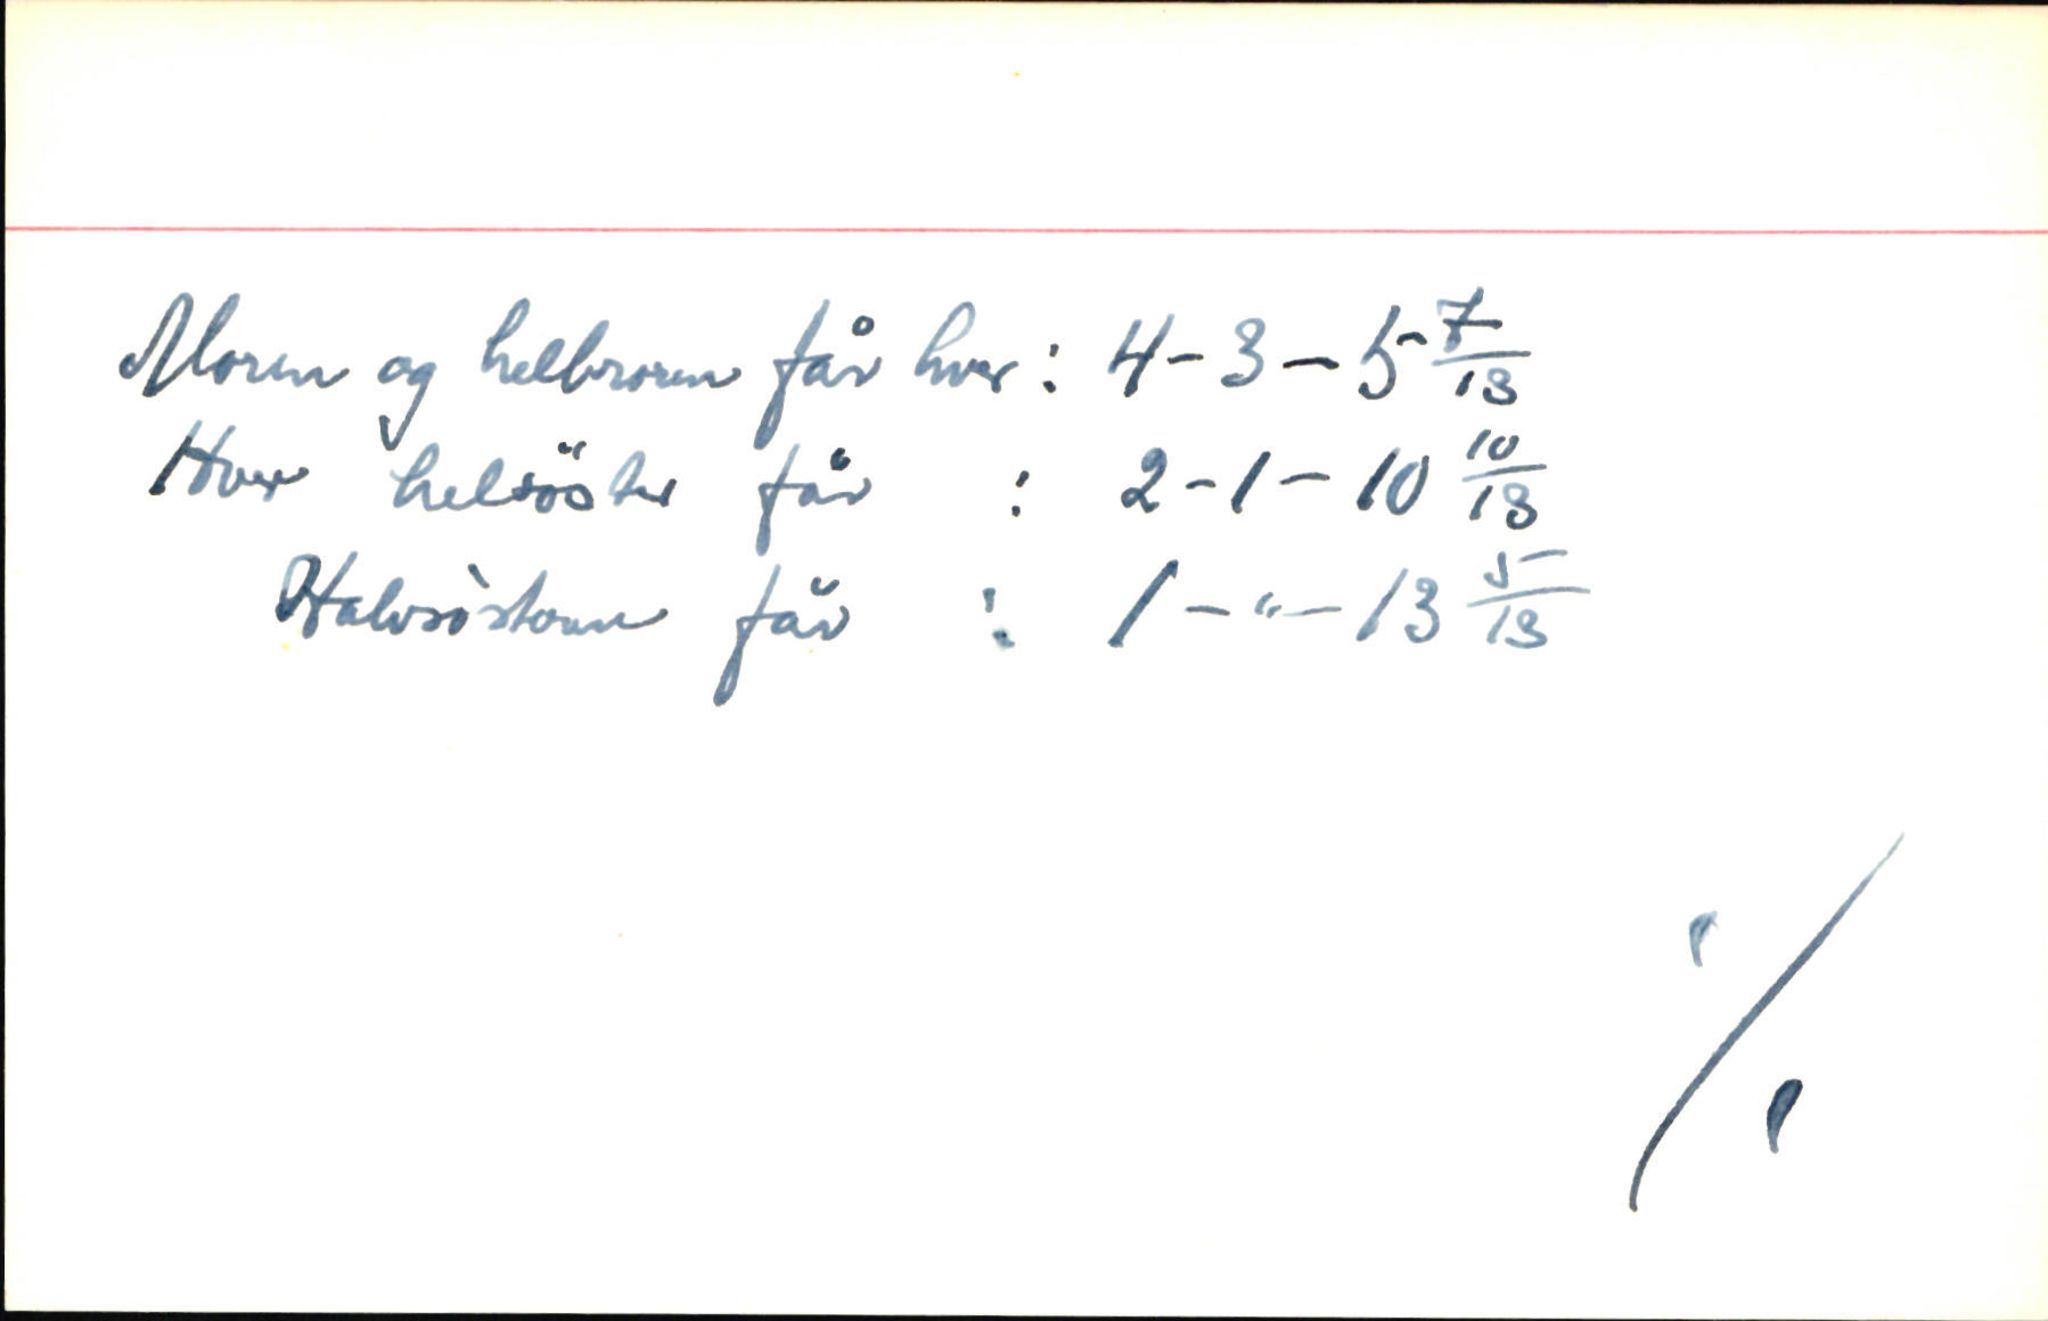 Moren og helbroren får hver: 4-3-5 7/13
Hver helsöster får : 2-1-10 10/13
Halvsösteren får : 1-"-13 5/13
%